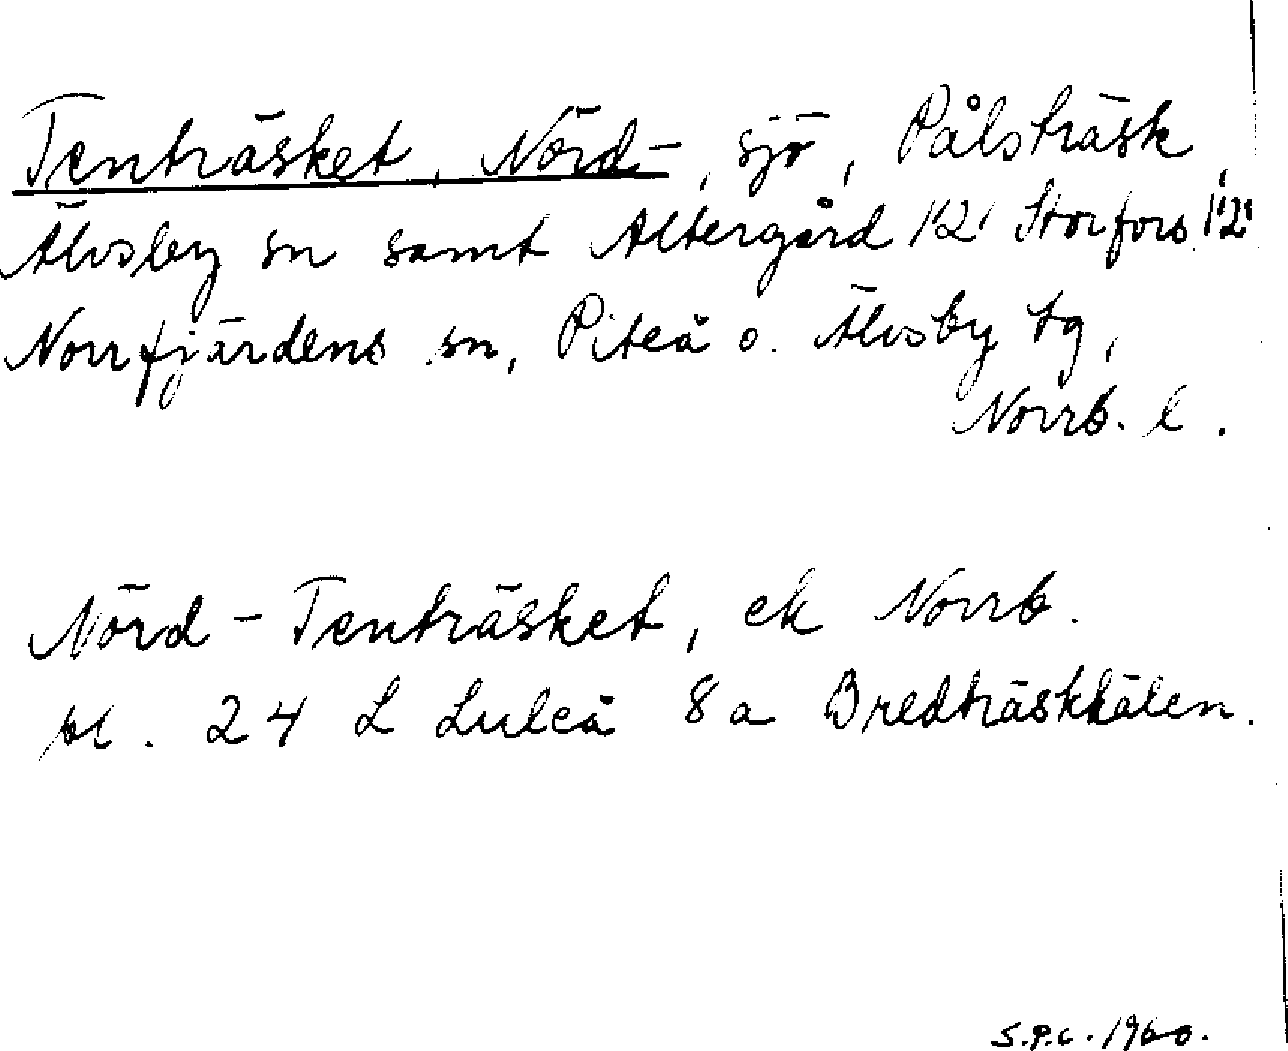 Tenträsket, Nörd-, sjö, Pålsträsk,
Älvsby sn samt Altergård 1'2' Storfors 1'2'
Norrfjärdens sn, Piteå o. Älvsby tg,
Norrb. l.
Nörd-Tenträsket, ek Norrb.
bl. 24 L Luleå 8 a Bredträskhålen.
S.P.C. 1960.